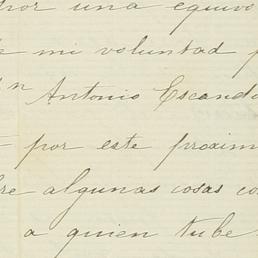 por una equivo
mi voluntad p
n Antonio Escand
por este proxim
re algunas cosas co
a quien tube